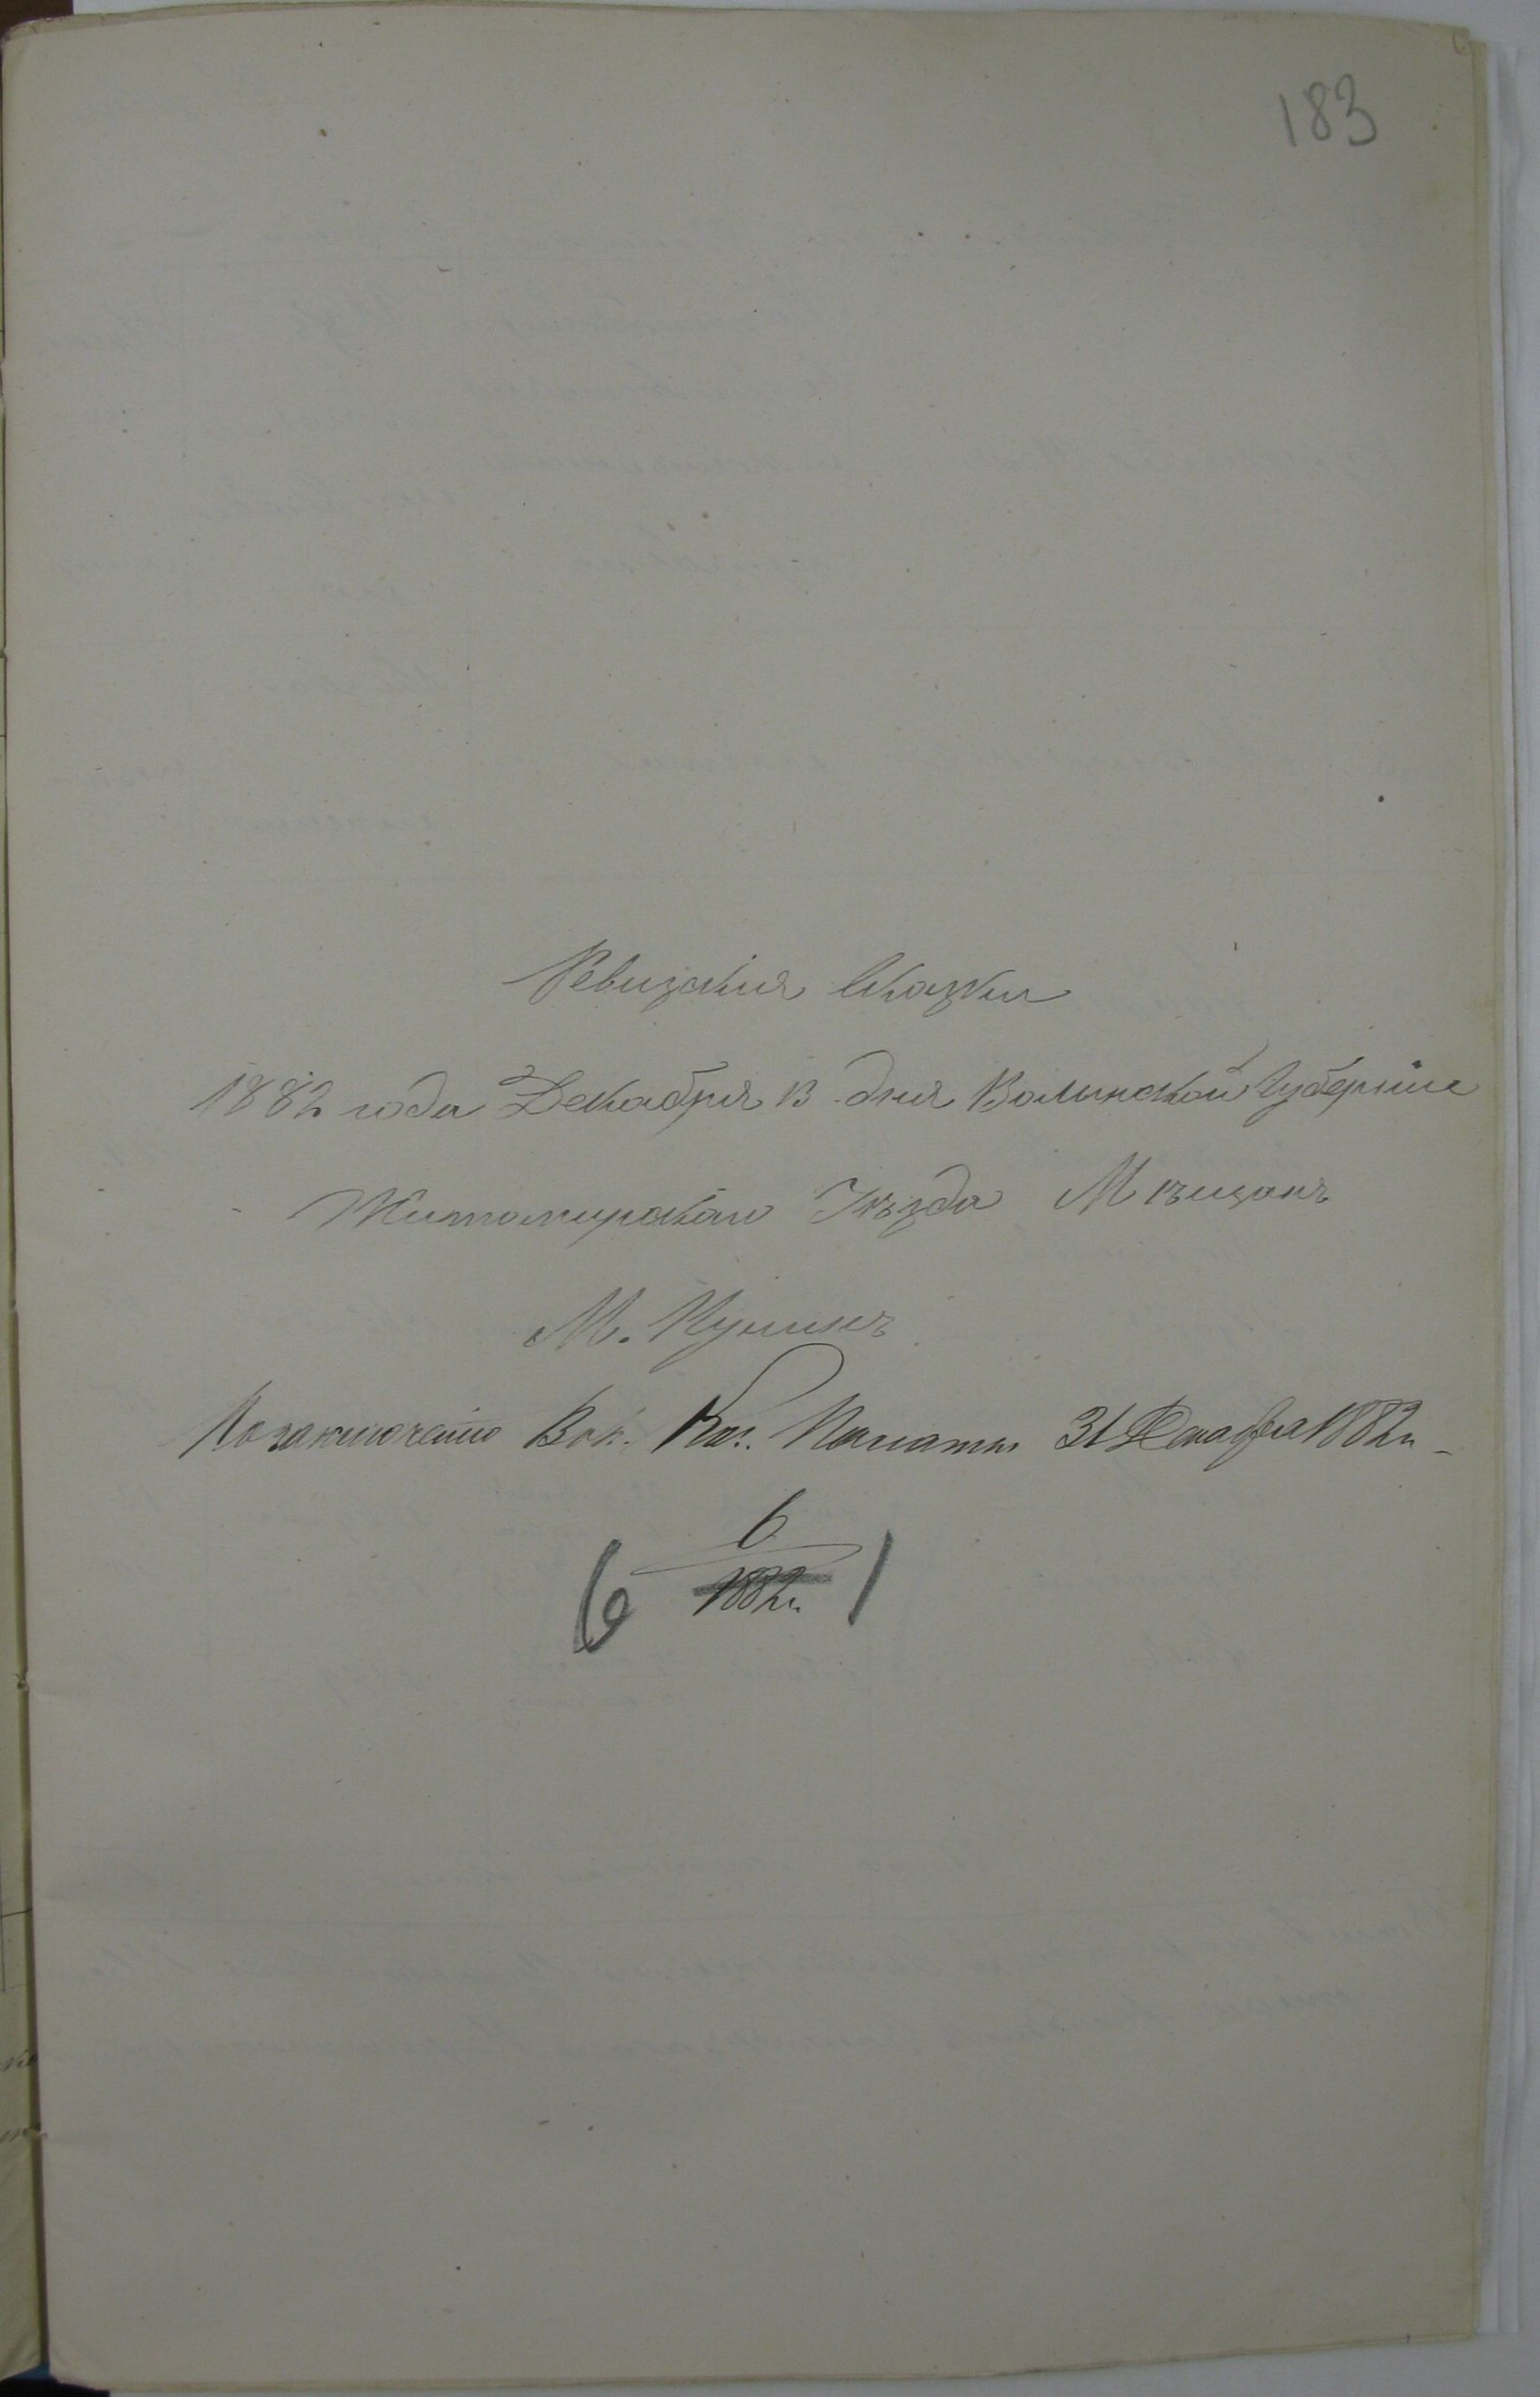 183
Ревизскія Сказки
1882 года Декабря 13 дня Волынской Губерніи
Житомирскаго Уѣзда Мѣщанъ
М. Кулинъ
По заключенію Вол. Каз. Палаты 31 Декабря 1882 г.
6
6 1882 г. 1